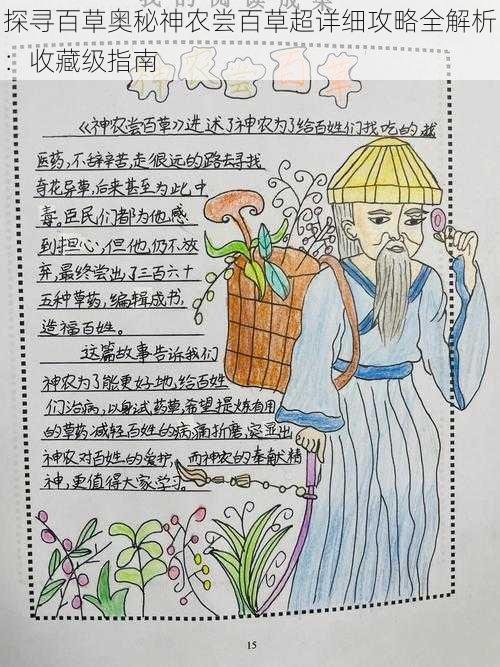 我的阅读成果
探寻百草奥秘神农尝百草超详细攻略全解析
：收藏级指南
神农尝百草
《神农尝百草》讲述了神农为了给百姓们找吃的找
医药,不辞辛苦,走很远的路去寻找
奇花异草,后来甚至为此中
毒,臣民们都为他感
到担心,但他仍不放
弃,最终尝出了三百六十
五种草药,编辑成书,
造福百姓。
这篇故事告诉我们
神农为了能更好地给百姓
们治病,以身试药草,希望提炼有用
的草药减轻百姓的病痛折磨,突显出
神农对百姓的爱护,而神农的奉献精
神,更值得大家学习。
15